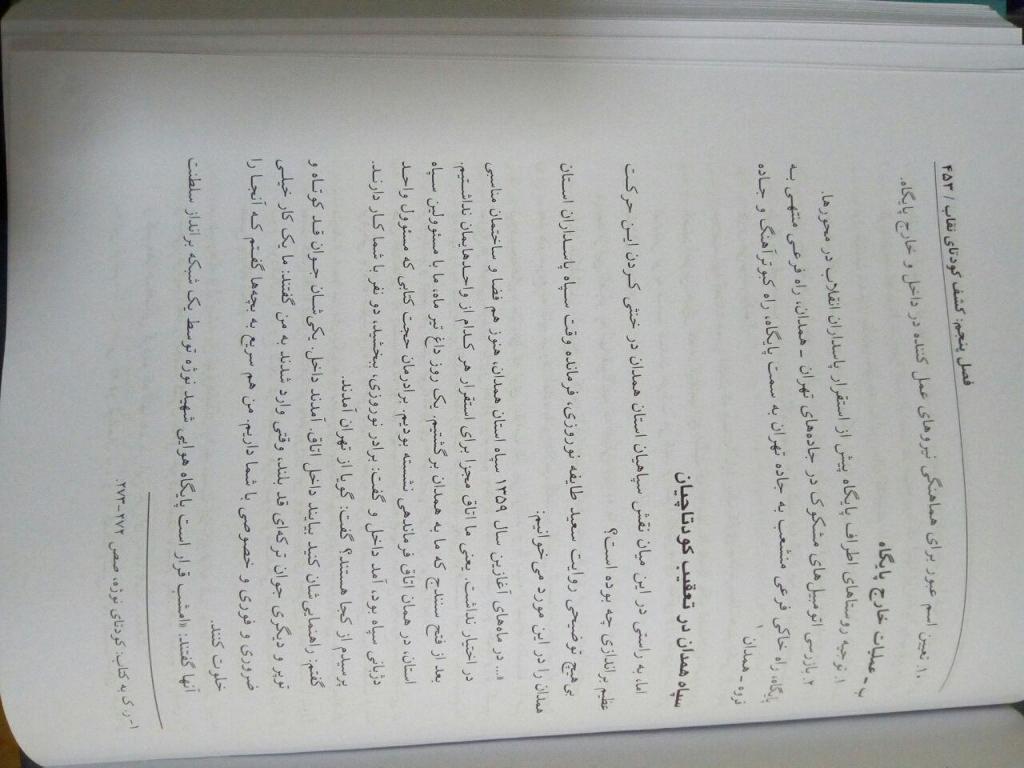 فصل پنجم: کشف کودتای نقاب / ۴۵۳
۱۰. تعیین اسم عبور برای هماهنگی نیروهای عمل کننده در داخل و خارج پایگاه.
ب ـ عملیات خارج پایگاه
۱. توجیه روستاهای اطراف پایگاه پیش از استقرار پاسداران انقلاب در محورها.
۲. بازرسی اتومبیل‌های مشکوک در جاده‌های تهران ـ همدان، راه فرعی منتهی به
پایگاه، راه خاکی فرعی منشعب به جاده تهران به سمت پایگاه، راه کبوترآهنگ و جاده
نروه ـ همدان ۱
سپاه همدان در تعقیب کودتاچیان
اما، به راستی در این میان نقش سپاهیان استان همدان در خنثی کردن این حرکت
عظیم براندازی چه بوده است؟
بی‌هیچ توضیحی روایت سعید طایفه نوروزی، فرمانده وقت سپاه پاسداران استان
همدان را در این مورد می‌خوانیم:
«... در ماه‌های آغازین سال ۱۳۵۹ سپاه استان همدان، هنوز هم فضا و ساختمان مناسبی
در اختیار نداشت. یعنی ما اتاق مجزا برای استقرار هر کدام از واحدهایمان نداشتیم.
بعد از فتح سنندج که ما به همدان برگشتیم. یک روز داغ تیر ماه، ما با مسئولین سپاه
استان، در همان اتاق فرماندهی نشسته بودیم. برادرمان حجت کتابی که مسئول واحد
دژبانی سپاه بود، آمد داخل و گفت: برادر نوروزی، ببخشید، دو نفر با شما کار دارند.
پرسیدم از کجا هستند؟ گفت: گویا از تهران آمدند.
گفتم: راهنمایی‌شان کنید بیایند داخل اتاق. آمدند داخل. یکی‌شان جوان قد کوتاه و
توپر و دیگری جوان ترکه‌ای قد بلند. وقتی وارد شدند به من گفتند: ما یک کار خیلی
ضروری و فوری و خصوصی با شما داریم. من هم سریع به بچه‌ها گفتم که آنجا را
خلوت کنند.
آنها گفتند: «امشب قرار است پایگاه هوایی شهید نوژه توسط یک شبکه برانداز سلطنت
۱- ر.ک به کتاب: کودتای نوژه، صص ۲۷۲-۲۷۳.